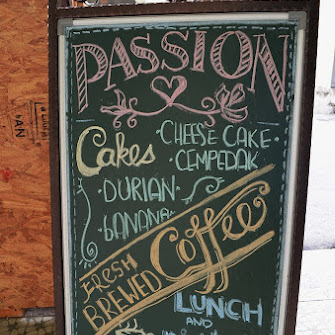 PASSION
Cakes
· CHEESE CAKE ·
· CEMPEDAK
· DURIAN ·
· BANANA
FRESH BREWED
Coffee
LUNCH
AND